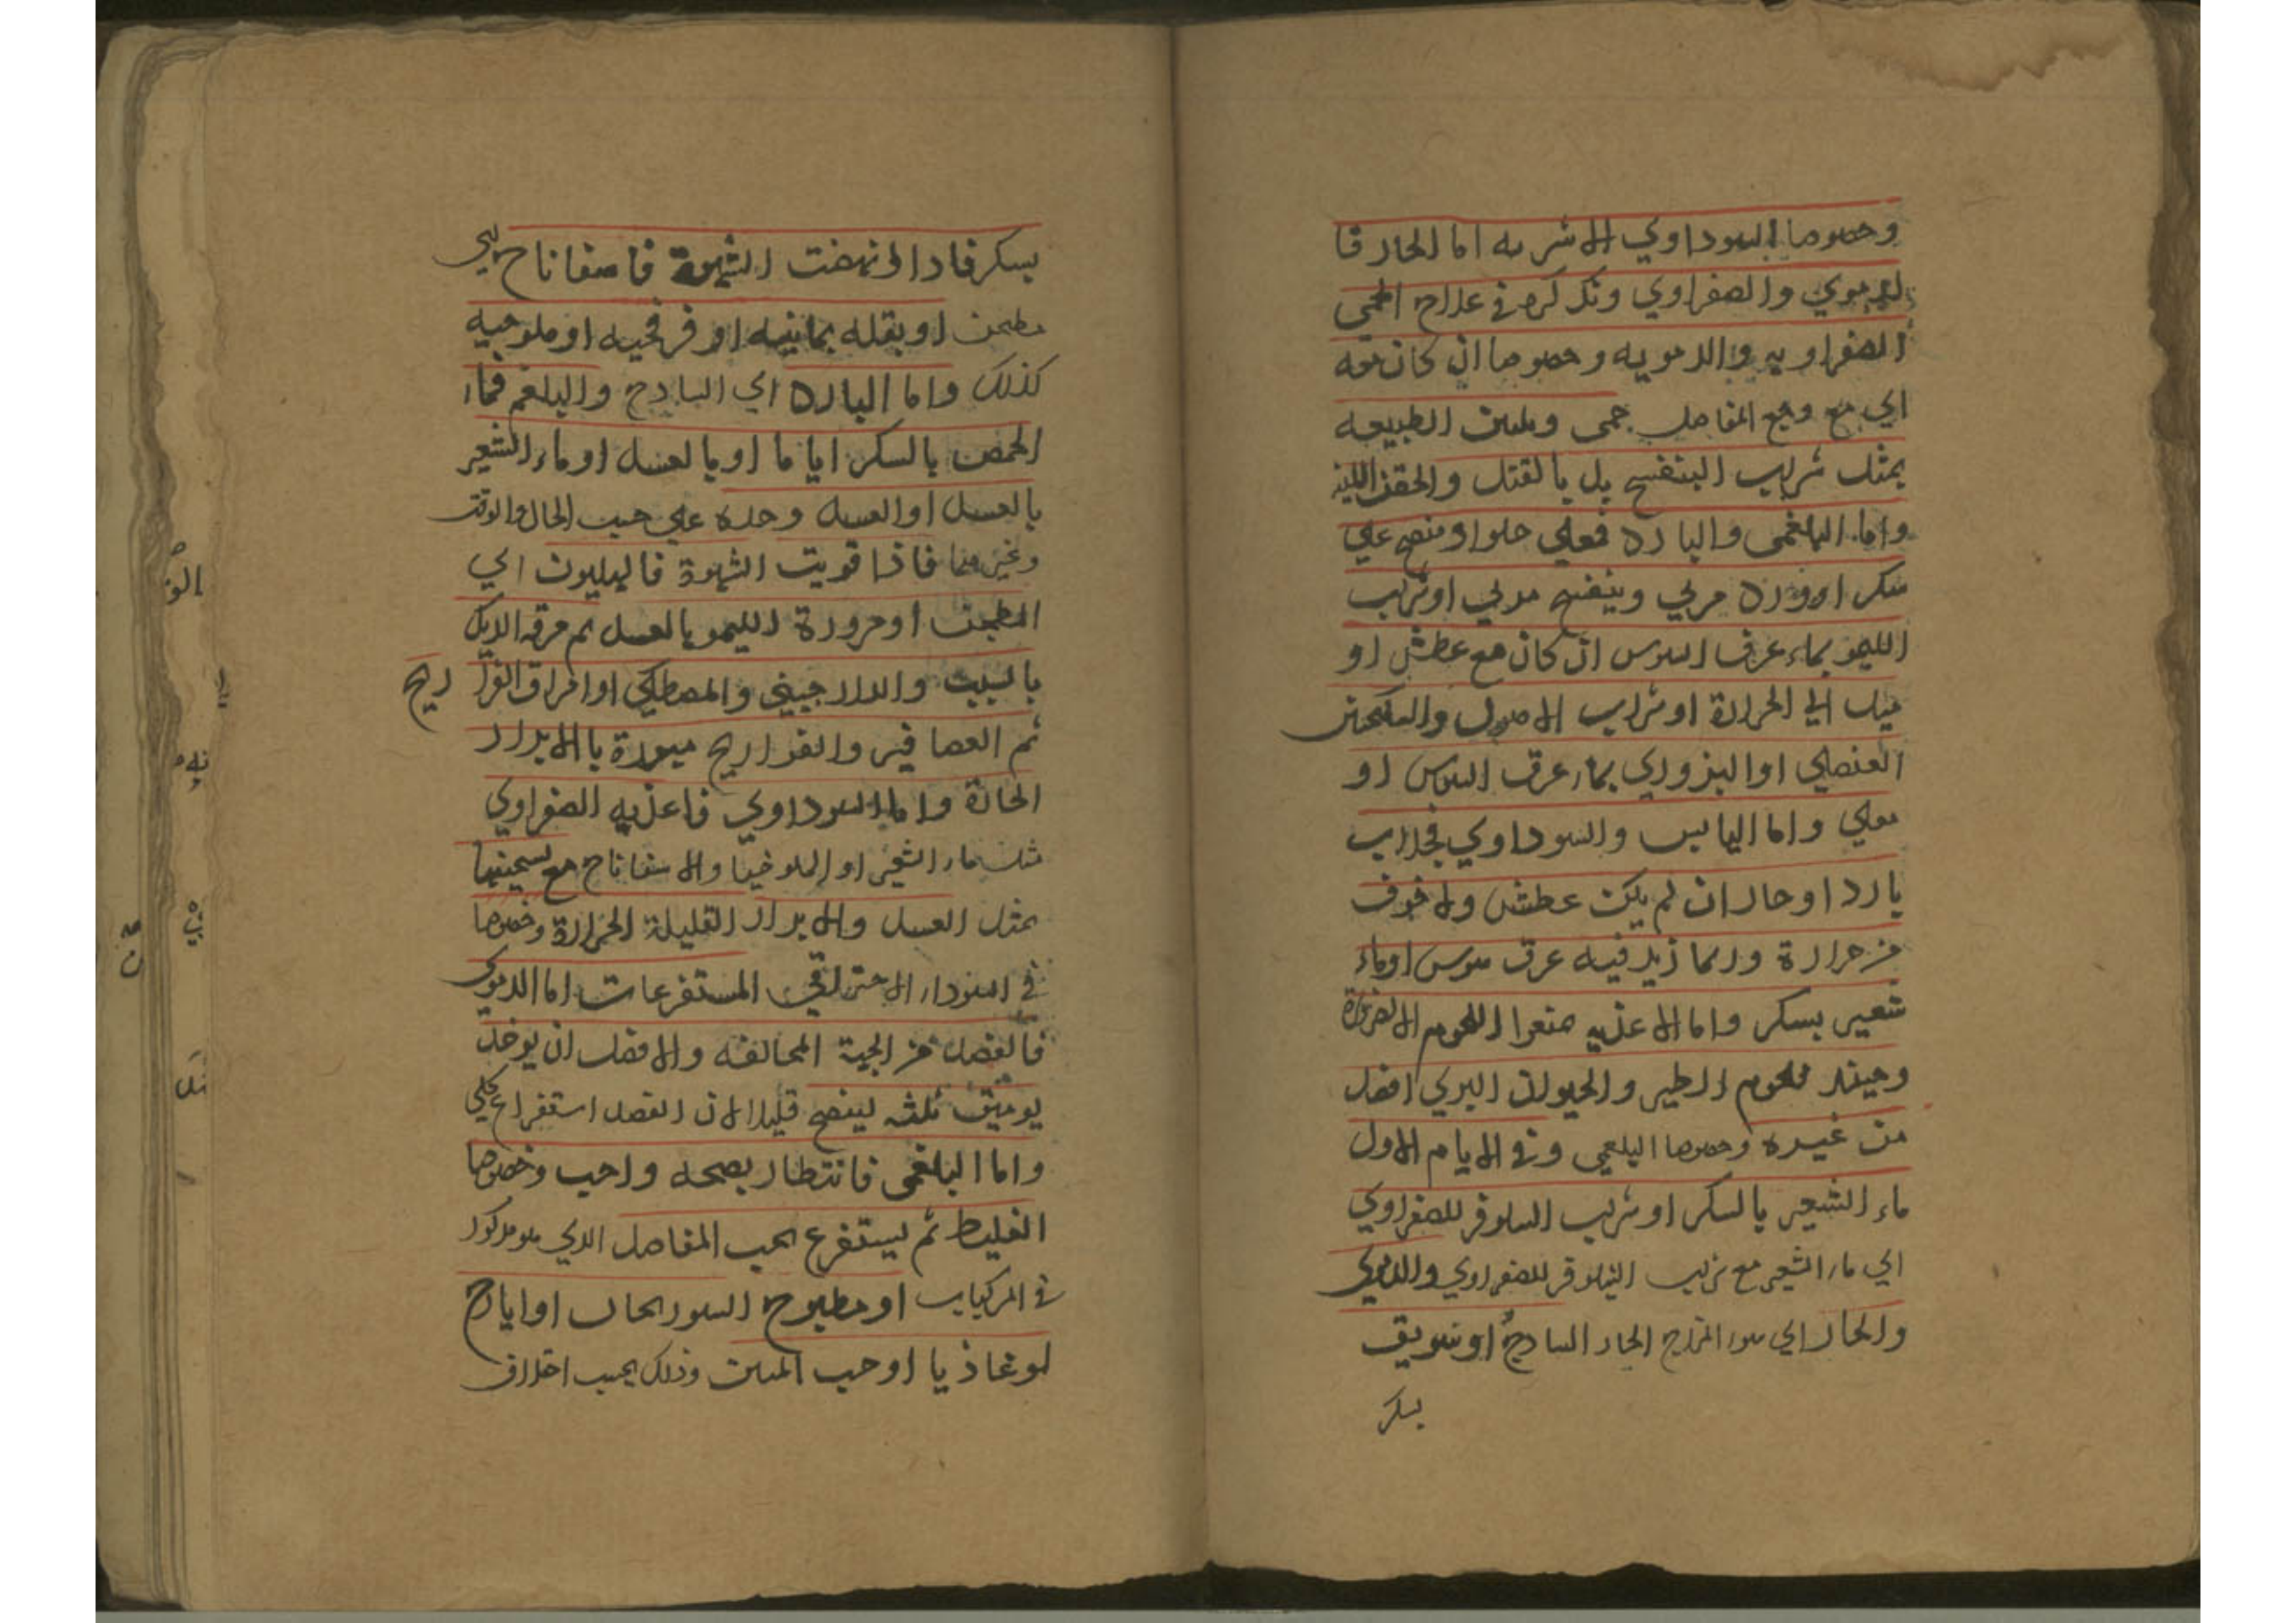 وخصوصا السوداوي الاشربه اما الحار فا
لدموي والصفراوي وتذكره في علاج الحمى
الصفراويه والدمويه وخصوصا ان كان معه
اي مع وجع المفاصل حمى وملين الطبيعه
بمثل شراب البنفسج بل بالفتل والحقن اللينه
واما البلغمى والبارد فعلي حلو او منضج علي
سكر او ورد مربي وبنفسج مربي او شراب
الليمو بماء عرق السوس ان كان مع عطش او
ميل الي الحرارة او شراب الاصول والسكنجبين
العنصلي او البزوري بماء عرق السوس او
مغلي واما اليابس والسوداوي فجلاب
بارد او حار ان لم يكن عطش ولا خوف
من حرارة وربما زيد فيه عرق سوس او ماء
شعير بسكر واما الاغذيه منعوا اللحوم الا لضرورة
وحينئد فلحوم الطير والحيوان البري افضل
من غيره وخصوصا البلغمي وفي الايام الاول
ماء الشعير بالسكر او شراب النيلوفر للصفراوي
اي ماء الشعير مع شراب النيلوفر للصفراوي والدموي
والحار اي سوء المزاج الحار السادج او سويق
بسكر
بسكر فادا انهضت الشهوة فاسفاناح
مطجن او بقله يمانيه او فرفحيه او ملوخيه
كذلك واما البارد اي السادج والبلغم فماء
الحمص بالسكر اياما او بالعسل او ماء الشعير
بالعسل او العسل وحده علي حسب الحال والوقت
وغيرهما فاذا قويت الشهوة فالهليون اي
المطجن او مزورة الليمو بالعسل ثم مرقه الديك
بالشبت والدارجيني والمصطكي او امراق الفرا ريح
ثم العصافير والفراريج مبزرة بالابزار
الحارة واما السوداوي فاغذيه الصفراوي
مثل ماء الشعير او الملوخيا والاسفاناح مع تسخينها
بمثل العسل والابزار القليلة الحرارة وخصوصا
في السوداء الاحتراقي المستفرغات اما الدموي
فالفصد من الجهة المخالفه والافضل ان يوخذ
يومين ثلثه لينضج قليلا لان الفصد استفراغ كلي
واما البلغمى فانتظار نضجه واجب وخصوصا
الغليظ ثم يستفرغ بحب المفاصل الدي هو مدكور
في المركبات او مطبوخ السورنجان او ايارج
لوغاذيا او حب المنتن وذلك بحسب اختلاف